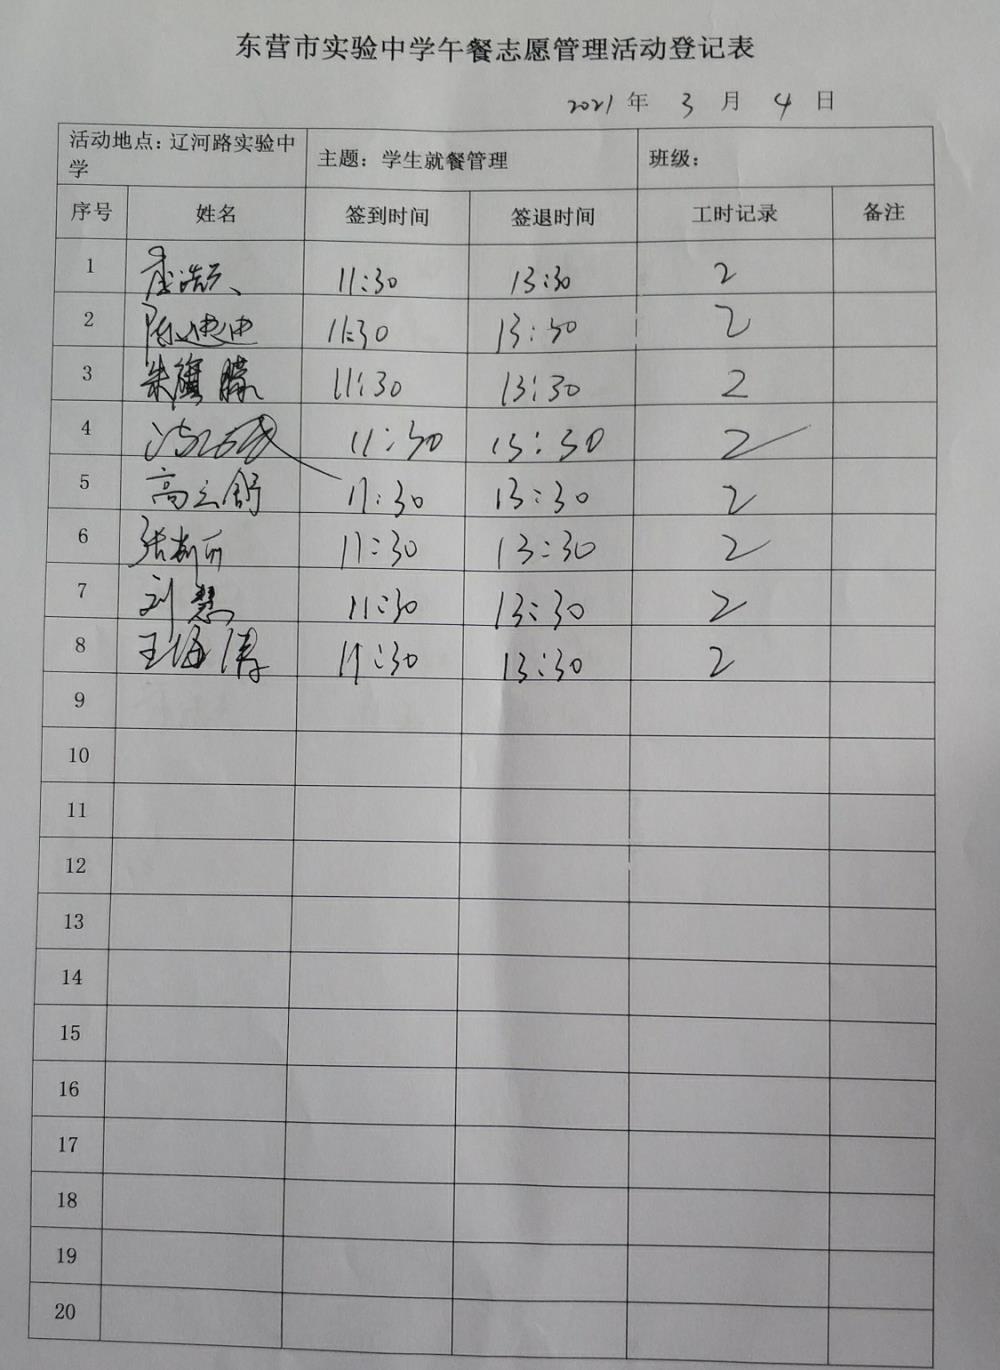 东营市实验中学午餐志愿管理活动登记表
2021 年 3 月 4 日
活动地点：辽河路实验中学 主题：学生就餐管理 班级：
序号 姓名 签到时间 签退时间 工时记录 备注
1 11:30 13:30 2
2 陈迪迪 11:30 13:30 2
3 朱旗朦 11:30 13:30 2
4 11:30 13:30 2
5 高云舒 11:30 13:30 2
6 张 11:30 13:30 2
7 刘慧 11:30 13:30 2
8 王海清 11:30 13:30 2
9
10
11
12
13
14
15
16
17
18
19
20